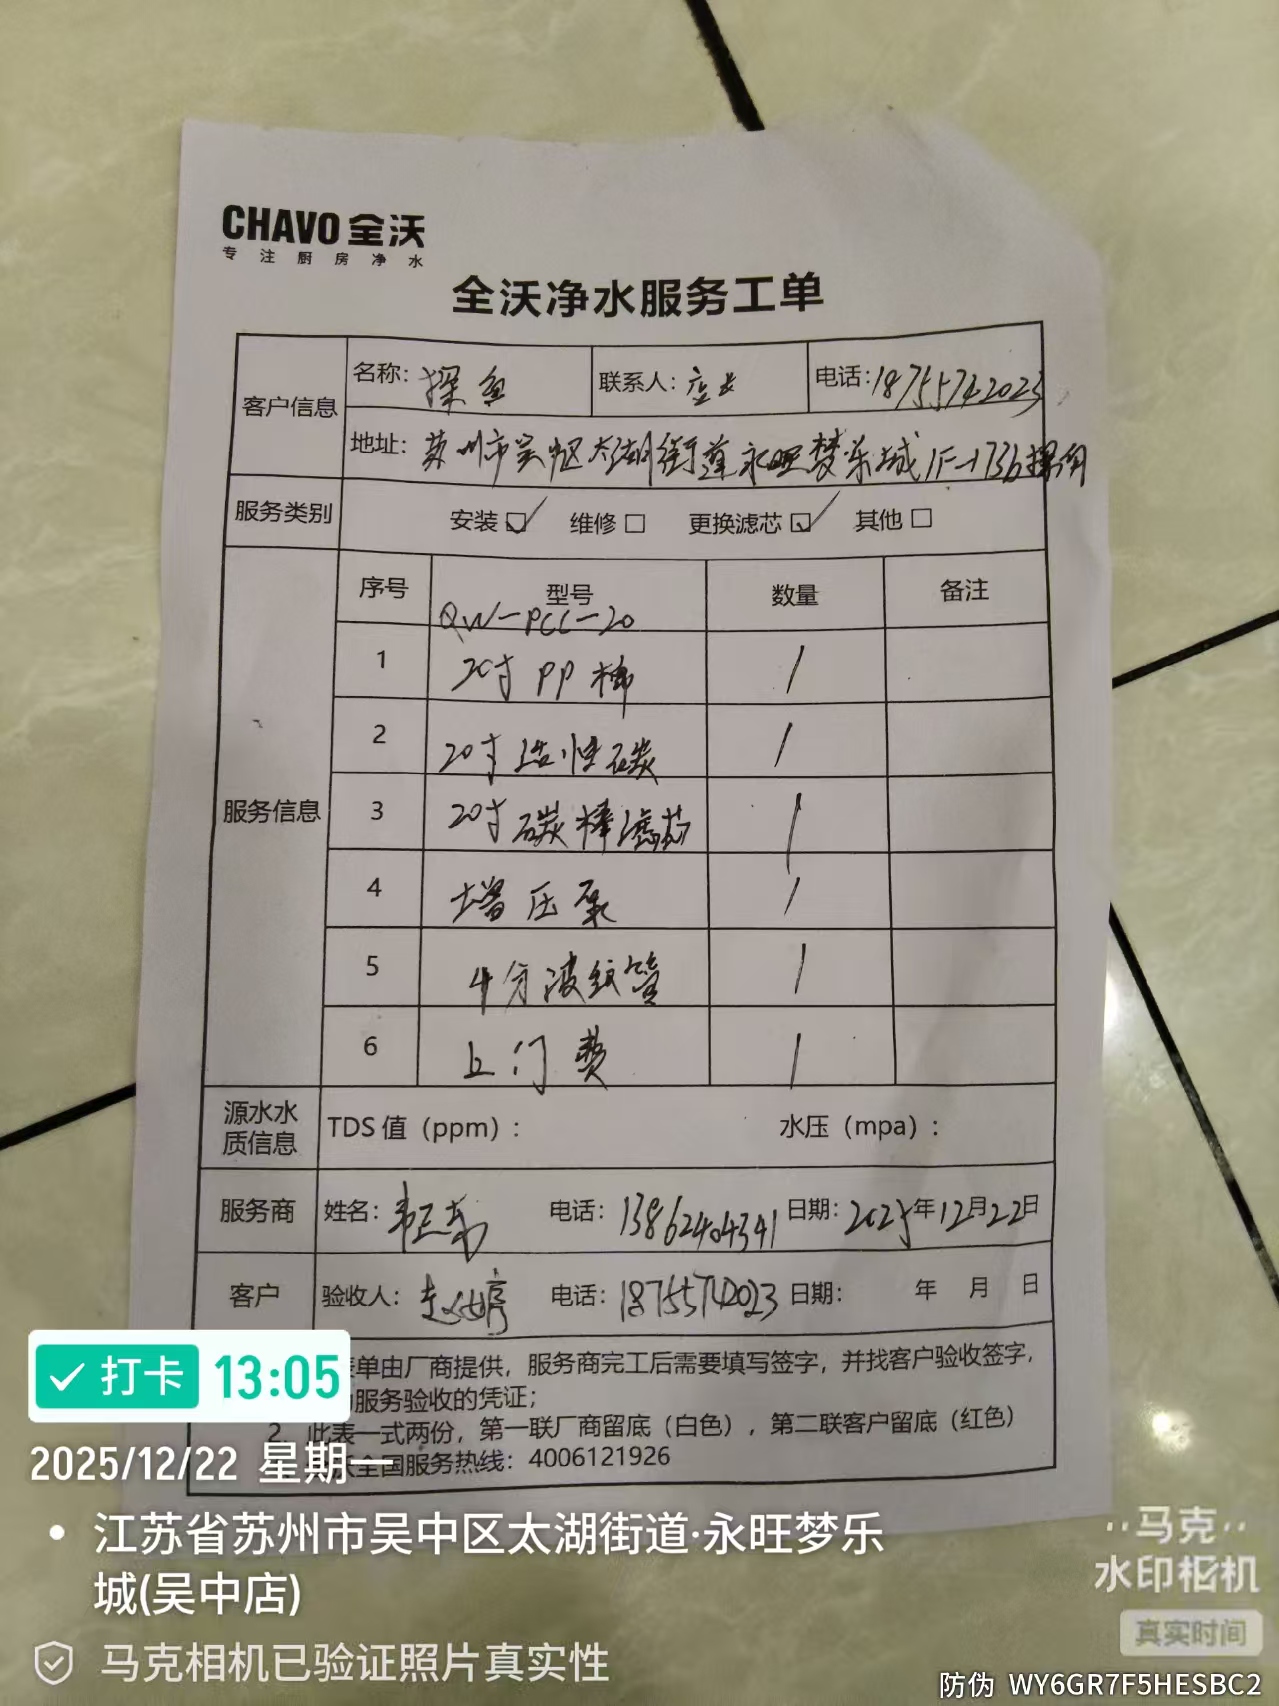 CHAVO 全沃
专注厨房净水
全沃净水服务工单
客户信息 名称：探鱼 联系人：店长 电话：18755742023
地址：苏州市吴中区太湖街道永旺梦乐城1F-173b探鱼
服务类别 安装☑ 维修□ 更换滤芯☑ 其他□
服务信息 序号 型号 数量 备注
QW-PCC-20
1 20寸PP棉 1
2 20寸活性碳 1
3 20寸碳棒滤芯 1
4 增压泵 1
5 4分波纹管 1
6 上门费 1
源水水质信息 TDS值（ppm）： 水压（mpa）：
服务商 姓名： 电话：13862404341 日期：2025年12月22日
客户 验收人： 电话：18755742023 日期： 年 月 日
表单由厂商提供，服务商完工后需要填写签字，并找客户验收签字，
服务验收的凭证；
2、此表一式两份，第一联厂商留底（白色），第二联客户留底（红色）
全国服务热线：4006121926
打卡 13:05
2025/12/22 星期一
江苏省苏州市吴中区太湖街道·永旺梦乐
城(吴中店)
马克相机已验证照片真实性
马克
水印相机
真实时间
防伪 WY6GR7F5HESBC2